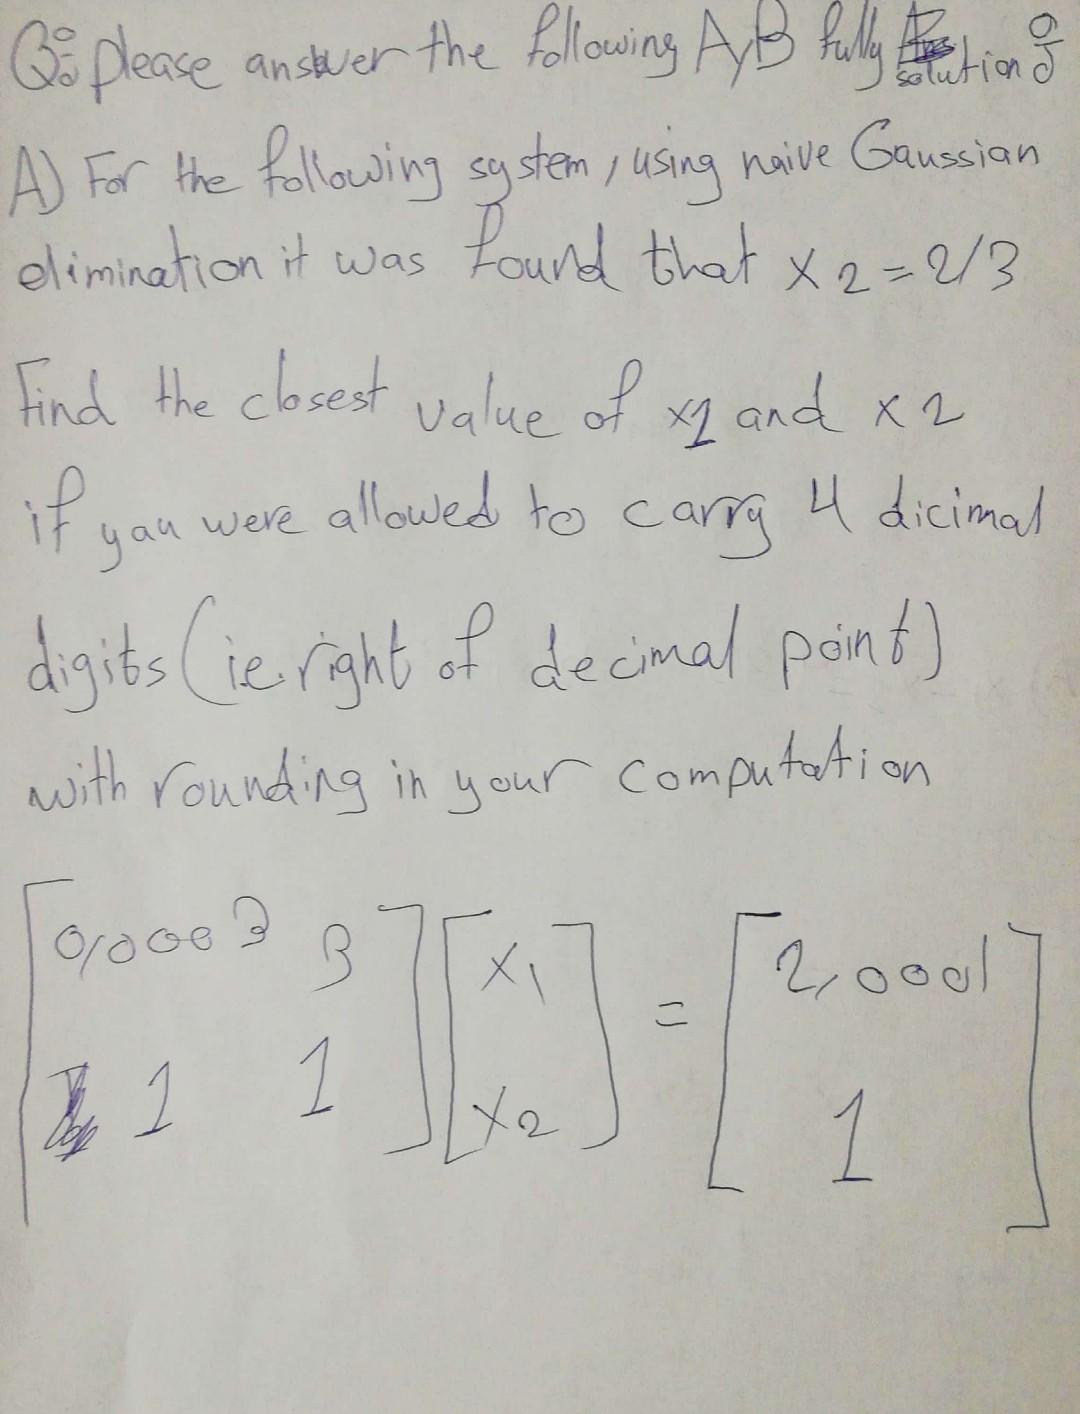 Q: please answer the following A,B fully solution
A) For the following system, using naive Gaussian
elimination it was found that x2 = 2/3
Find the closest value of x1 and x2
if you were allowed to carry 4 dicimal
digits (i.e. right of decimal point)
with rounding in your computation
[0,0003 3] [x1] = [2,0001]
[1 1] [x2] [1]